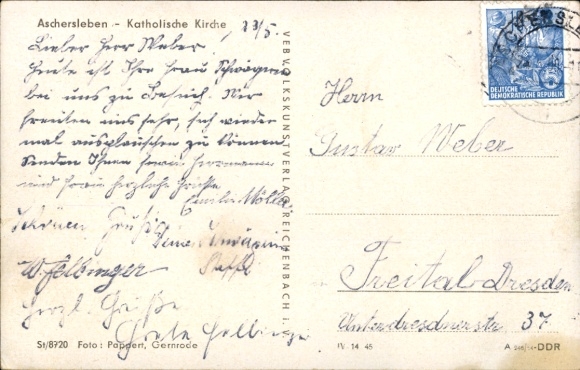 Aschersleben - Katholische Kirche
23/5.
Lieber Herr Weber.
Heute ist Ihre Frau Schwägerin
bei uns zu Besuch. Wir
freuten uns sehr, sich wieder
mal ausplauschen zu können.
Senden Ihnen sowie
und Frau herzliche Grüße
Familie Möller
Schönen Gruß
Deine Schwägerin
W. Felbinger
Herzl. Grüße
Grete Felbinger
St/8720 Foto: Poppert, Gernrode
VEB VOLKSKUNSTVERLAG REICHENBACH i. V.
DEUTSCHE
DEMOKRATISCHE REPUBLIK
Herrn
Gustav Weber
Freital-Dresden
Unterdresdnerstr. 37
IV. 14 45
DDR